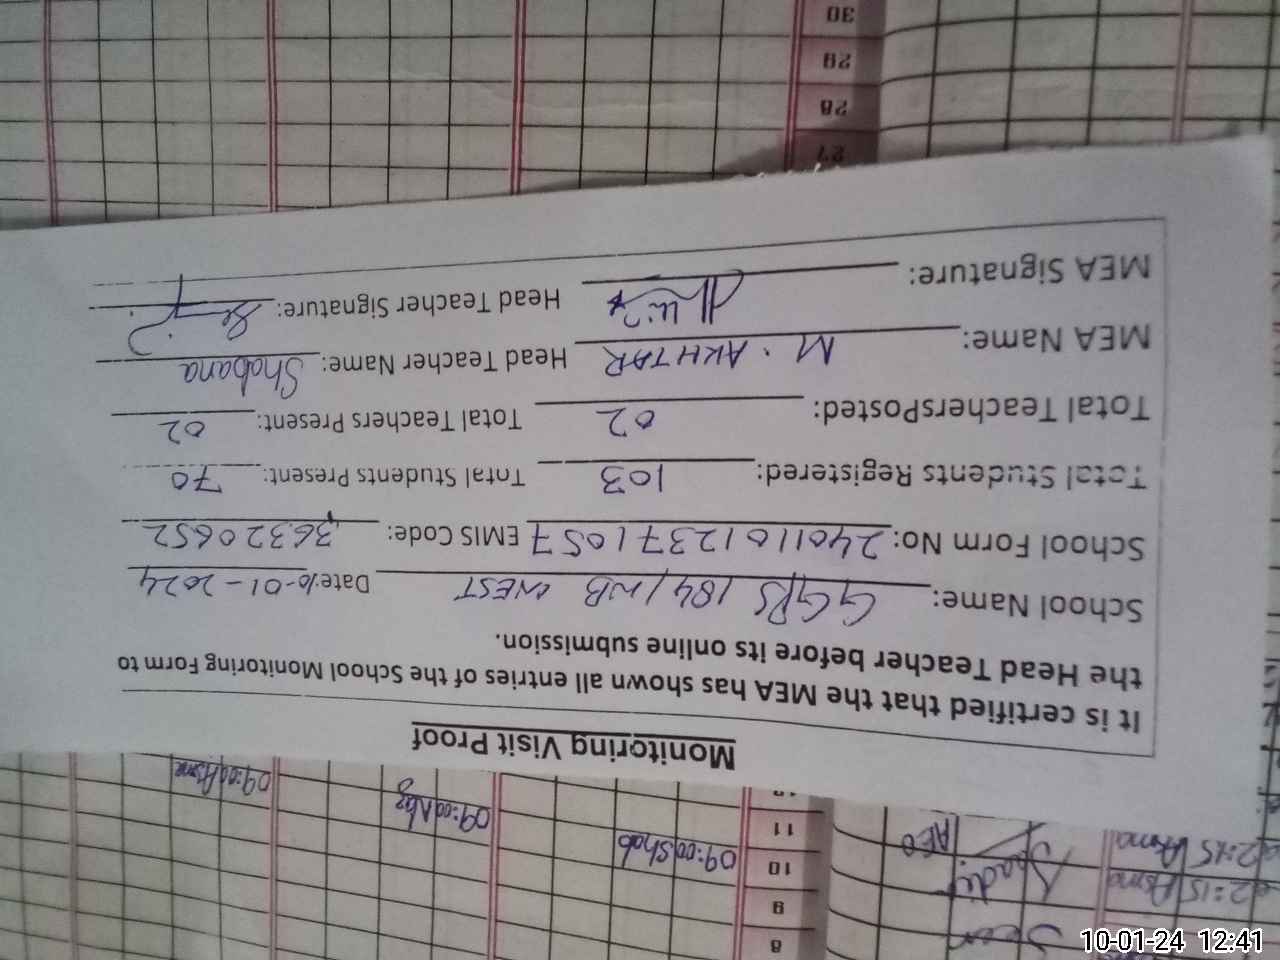 Monitoring Visit Proof
It is certified that the MEA has shown all entries of the School Monitoring Form to
the Head Teacher before its online submission.
School Name: GGPS 184/NB WEST Date: 10-01-2024
School Form No: 24011012371057 EMIS Code: 36320652
Total Students Registered: 103 Total Students Present: 70
Total TeachersPosted: 02 Total Teachers Present: 02
MEA Name: M. AKHTAR Head Teacher Name: Shabana
MEA Signature: Head Teacher Signature:
8
9
10 09:00 Shab
11 09:00 Naz
09:00 Asma
2:15 Asma
2:15 Asma
AEO
27
28
29
30
10-01-24 12:41